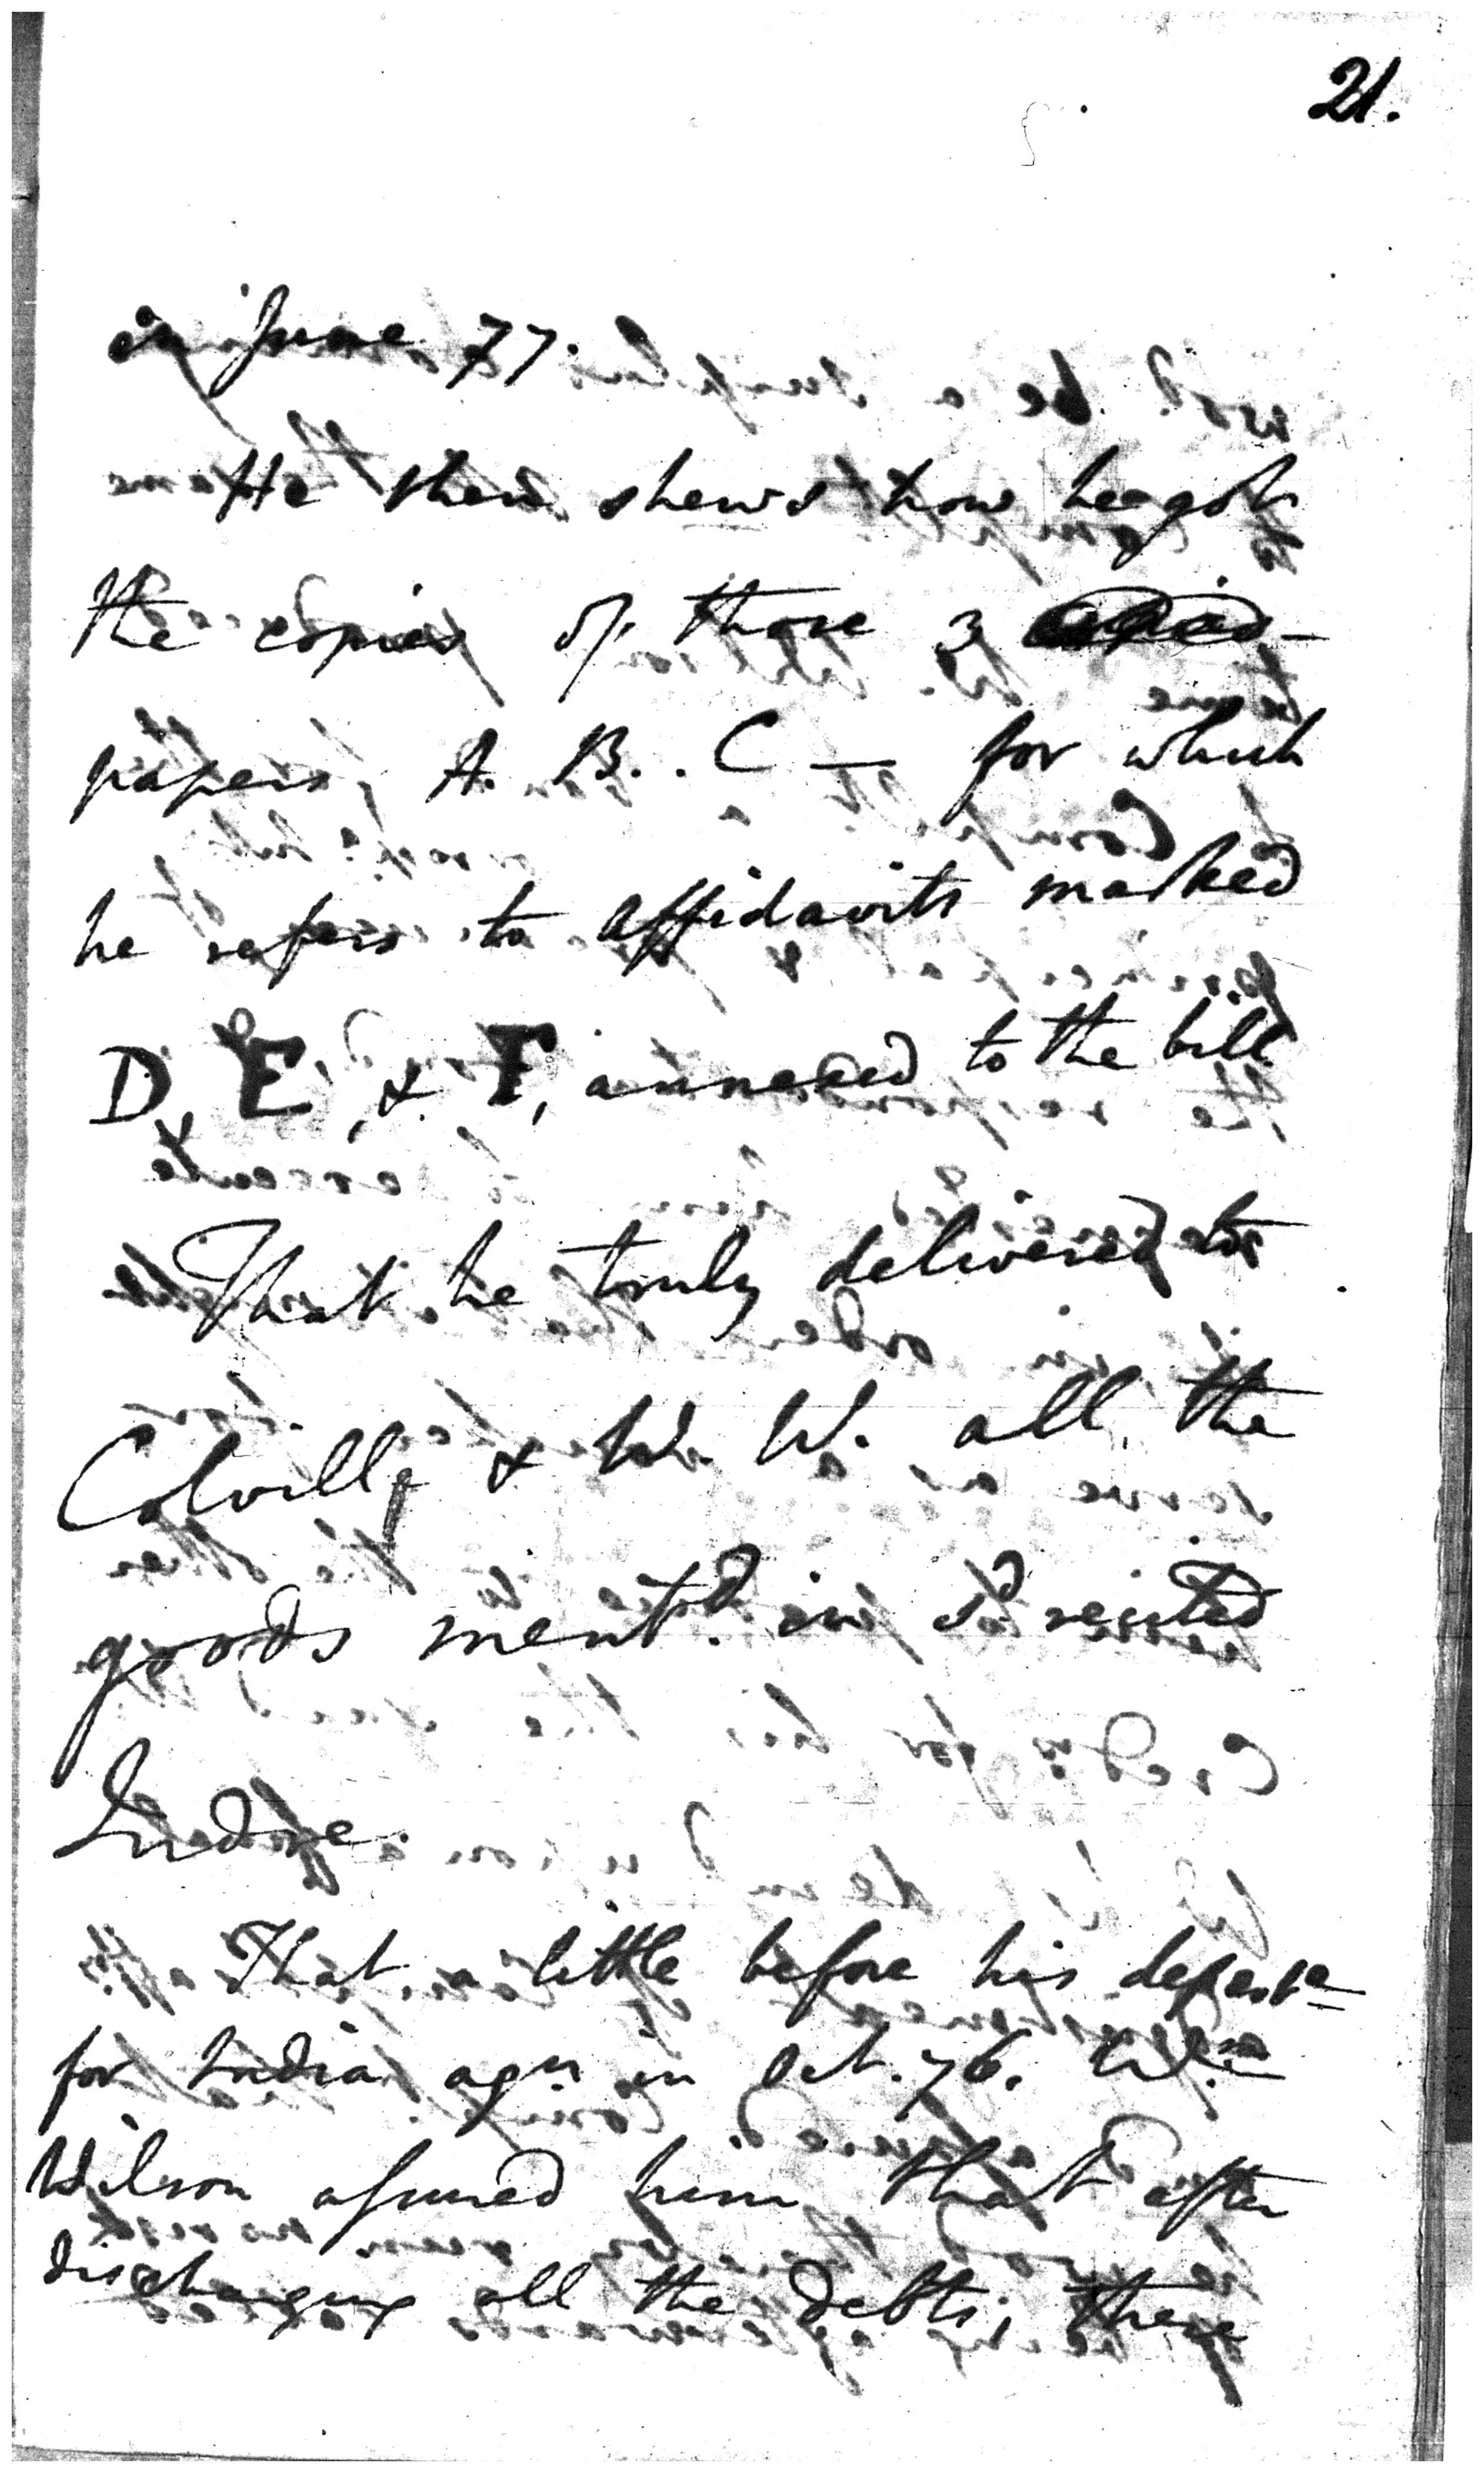 21.
in June 77.
He then shews how he got
the copies of those 3
papers, A. B.. C — for which
he refers to affidavits marked
D, E, & F, annexed to the bill
That he truly delivered to
Colvill & W. W. all the
goods ment.d in sd recited
Indre.
That a little before his departe
for India agn in Oct. 76. Wm
Wilson assured him that after
discharging all the debts, there